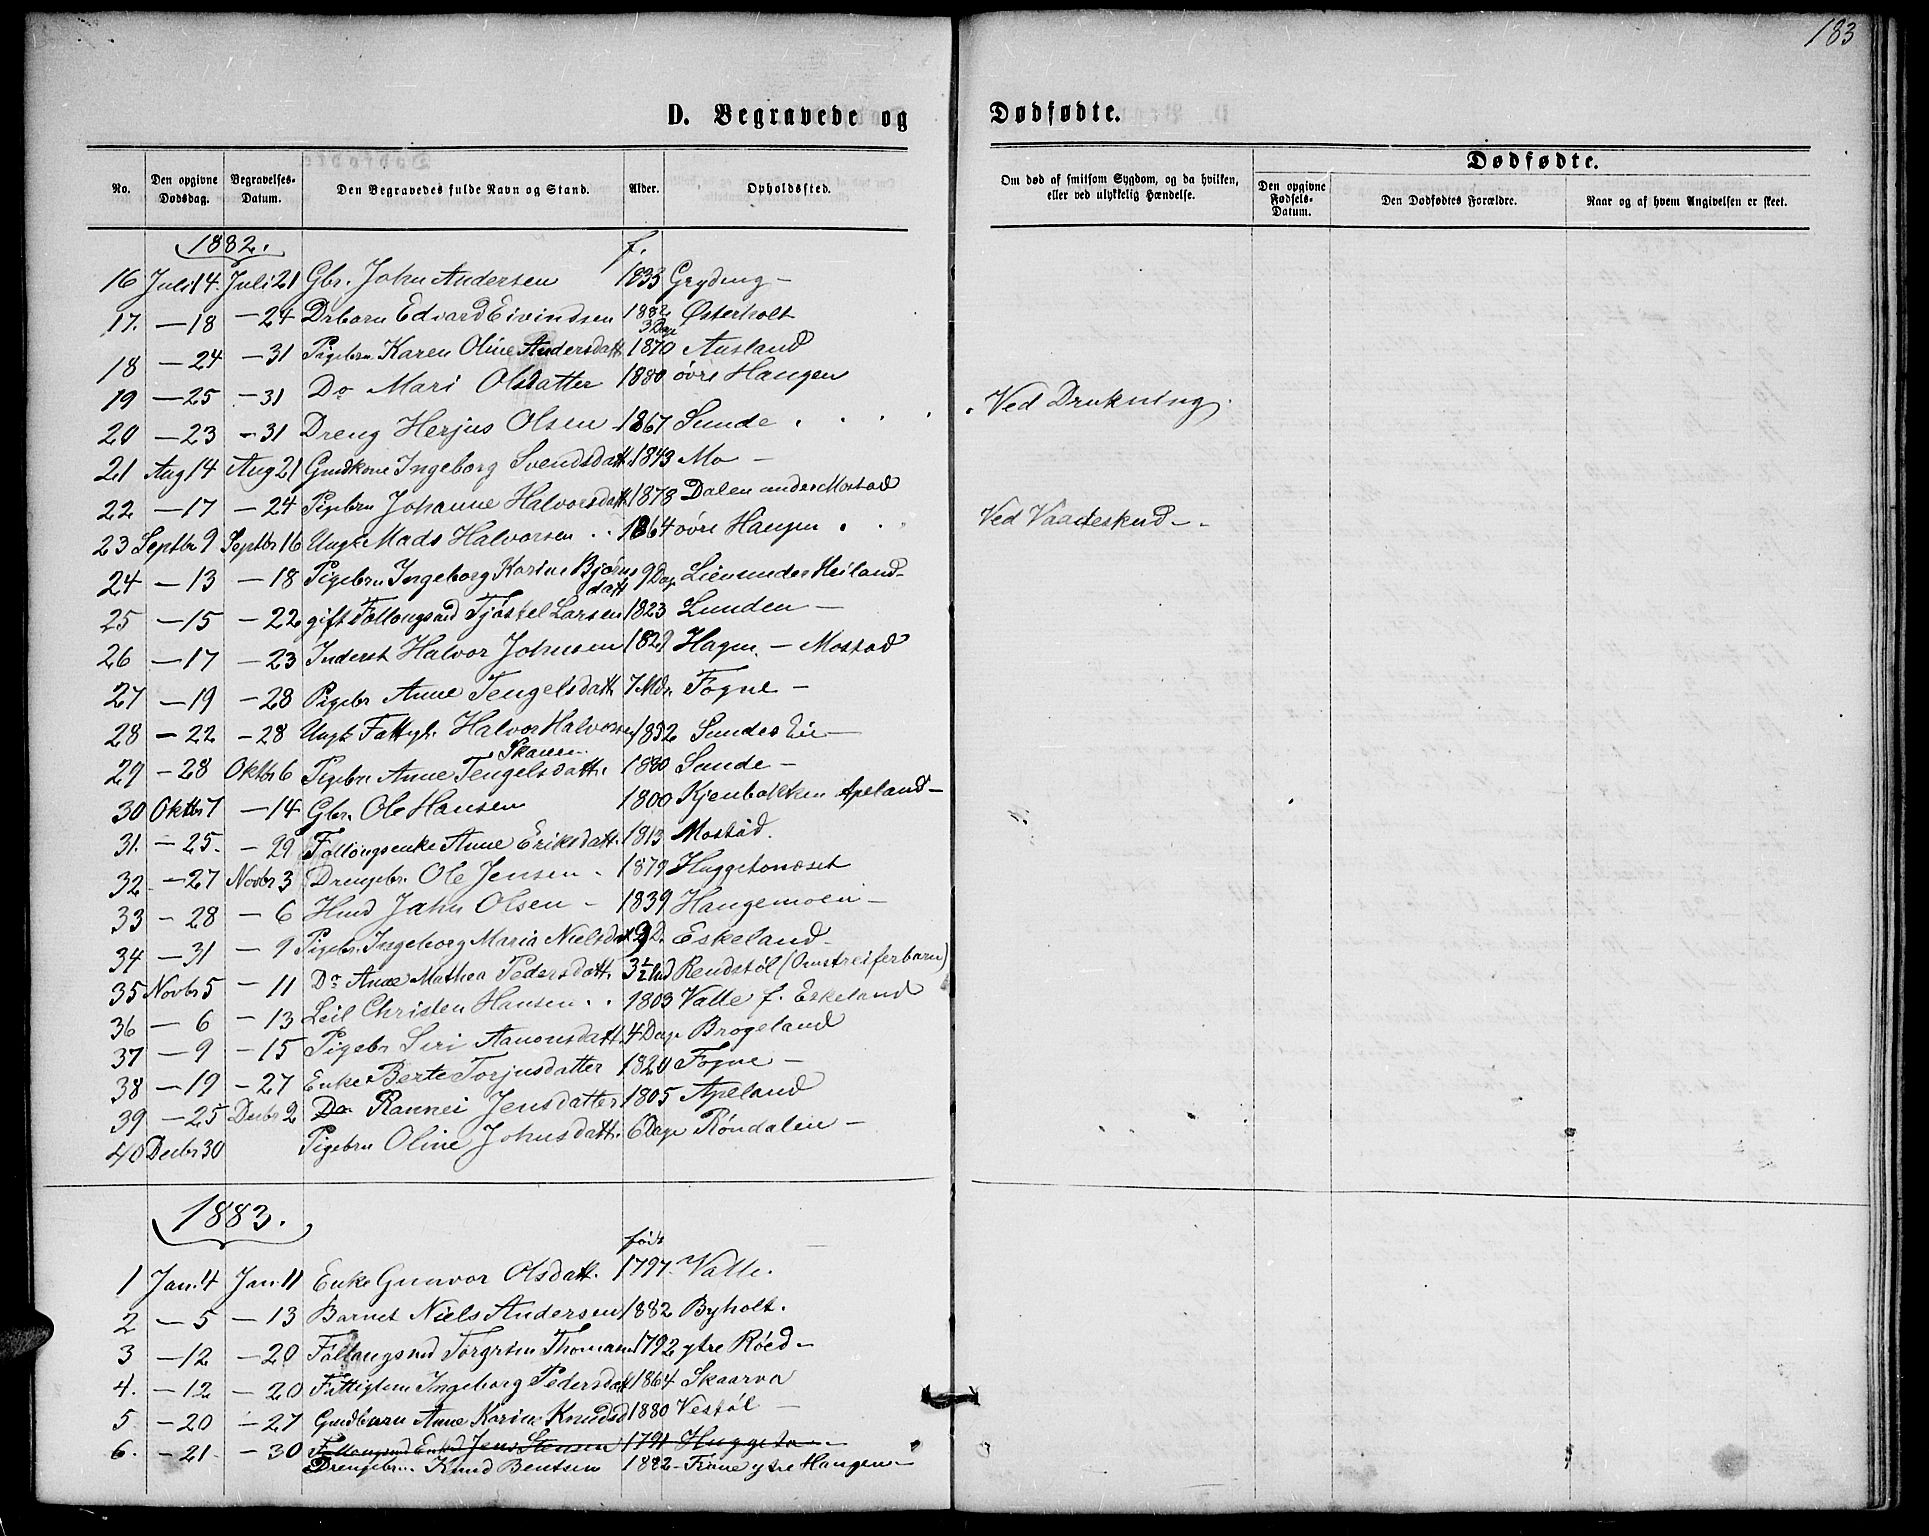 183
D. Begravede og Dødfødte.
No. Den opgivne Dødsdag. Begravelses-Datum. Den Begravedes fulde Navn og Stand. Alder. Opholdssted. Om død af smitsom Sygdom, og da hvilken, eller ved ulykkelig Hændelse. Dødfødte. Den opgivne Fødsels-Datum. Den Dødfødtes Forældre. Naar og af hvem Angivelsen er skeet.
1882. f.
16 Juli 14. Juli 21 Gbr. John Andersen 1833 Gryting -
17. - 18 - 24 Drbarn Edvard Eivindsen 1882 3 Dage Østerholt
18 - 24 - 31 Pigebrn Karen Oline Andersdatt. 1870 Ausland
19 - 25 - 31 Do Mari Olsdatter 1880 øvre Haugen
20 - 23 - 31 Dreng Herjus Olsen - 1867 Sunde . . . . Ved Drukning.
21 Aug 14 Aug 21 Gmdkone Ingeborg Svendsdatt. 1843 Mo -
22 - 17 - 24 Pigebrn Johanne Halvorsdatt. 1878 Dalen under Mostad
23 Septbr 9 Septbr 16 Ungk. Mads Halvorsen . . 1864 øvre Haugen . . . Ved Vaadeskud - .
24 - 13 - 18 Pigebrn Ingeborg Karine Bjørnsdatt 9 Dag. Lien under Heiland -
25 - 15 - 22 gift Follougsmd Tjøstel Larsen 1823 Lunden -
26 - 17 - 23 Inderst Halvor Johnsen 1829 Hagen - Mostad
27 - 19 - 28 Pigebr Anne Tengelsdatt. 7 Mdr. Fogne -
28 - 22 - 28 Ungk Fattigl. Halvor Halvorsen 1832 Sundes Eie -
29 - 28 Oktbr 6 Pigebrn Anne Tengelsdatt. 1880 Sunde -
30 Oktbr 7 - 14 Gbr. Ole Hansen 1800 Kjenbakken Apeland -
31. - 25. - 29 Follougsenke Anne Eriksdatt. 1813 Mostad.
32 - 27 Novbr 3 Drengebr. Ole Jensen - 1879 Huggetonæset
33 - 28 - 6 Hmd John Olsen - 1839 Haugemoen -
34 - 31 - 9 Pigebr. Ingeborg Maria Nielsdat 9 D. Eskeland -
35 Novbr 5 - 11 Do Anne Mathea Pedersdatt. 3½ Md Rendstøl (Omstreiferbarn)
36 - 6 - 13 Leil Christen Hansen . . 1803 Valle f. Eskeland
37 - 9 - 15 Pigebr Siri Aanonsdatt. 4 Dage Brogeland
38 - 19 - 27 Enke Berte Torjusdatter 1820 Fogne -
39 - 25 Decbr 2 Do Rannei Jensdatter 1805 Apeland
40 Decbr 30 Pigebrn Oline Johnsdatt. 6 Dage Røndalen -
1883. født
1 Jan. 4 Jan. 11 Enke Gunvor Olsdatt. 1797. Valle.
2 - 5 - 13 Barnet Niels Andersen 1882 Byholt.
3 - 12 - 20 Follougsmd Torgrim Thomasen 1792 ytre Røed -
4. - 12 - 20 Fattiglem Ingeborg Pedersdatt 1864 Skaarva
5 - 20 - 27 Gmdbarn Anne Karine Knudsd 1880 Vestøl -
6. - 21. - 30 Follougsmd Enkd Jens Stensen 1791 Huggeto -
Drengebr. Knud Bentsen 1882 - Frøne ytre Haugen -